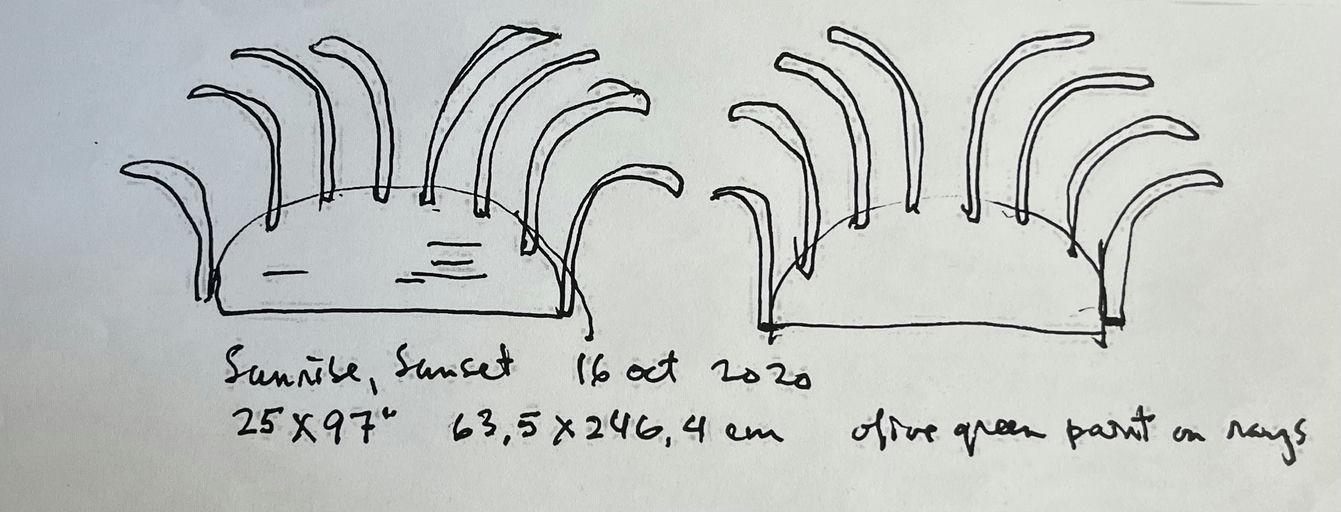 Sunrise, Sunset 16 oct 2020
25 x 97" 63,5 x 246,4 cm olive green paint on rays